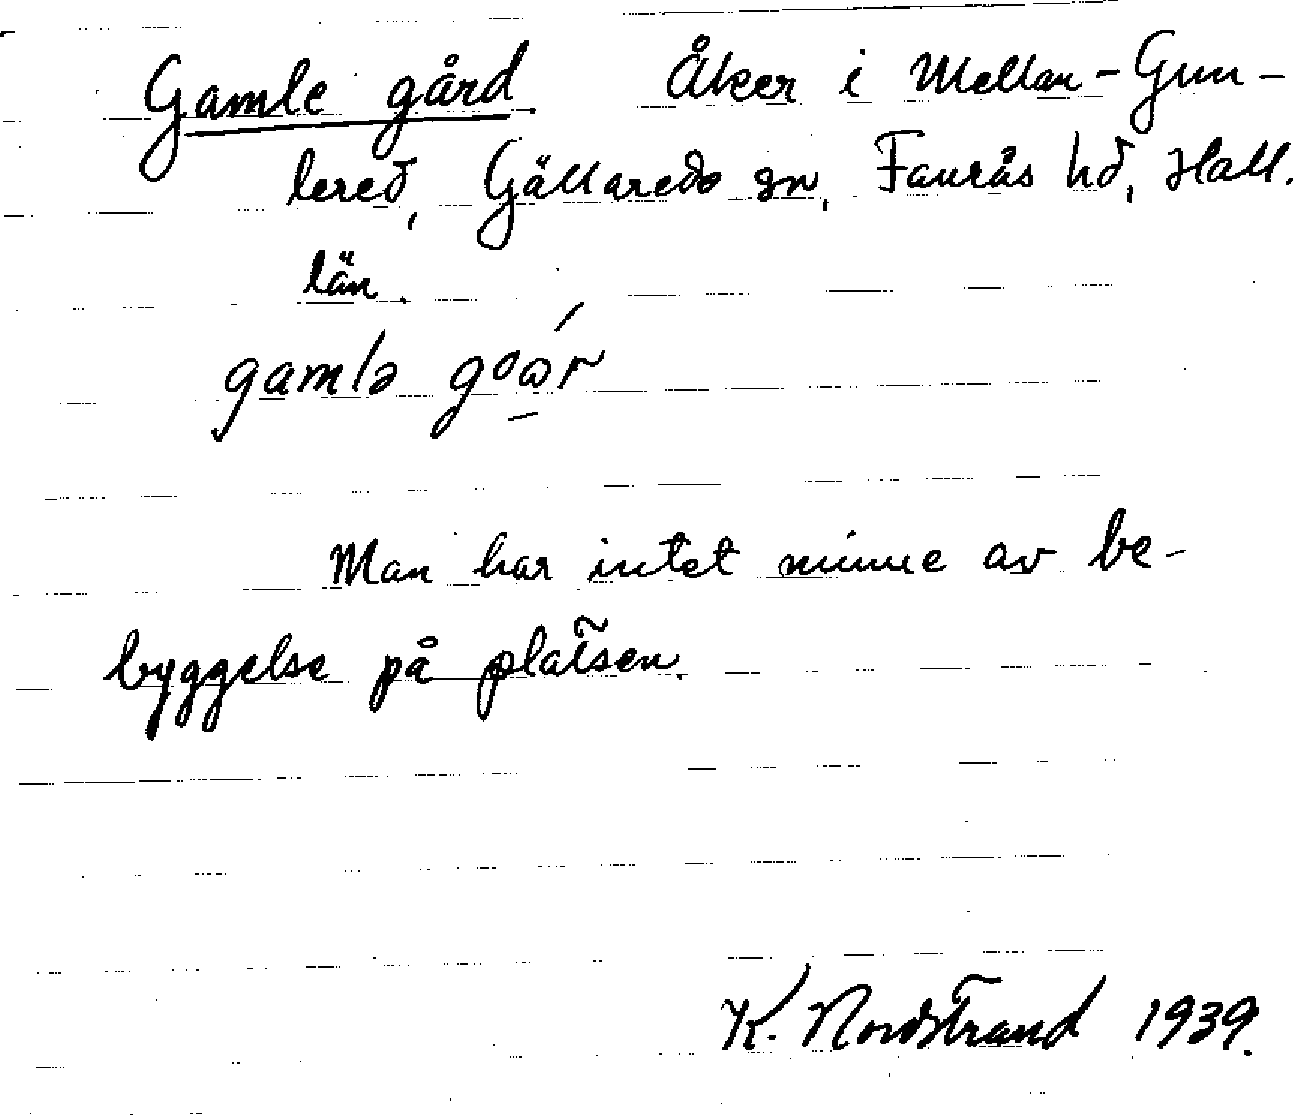 Gamle gård. Åker i Mellan-Gun-
lered, Gällareds sn, Faurås hd, Hall.
län.
gamlə
Man har intet minne av be-
byggelse på platsen.
K. Nordstrand 1939.